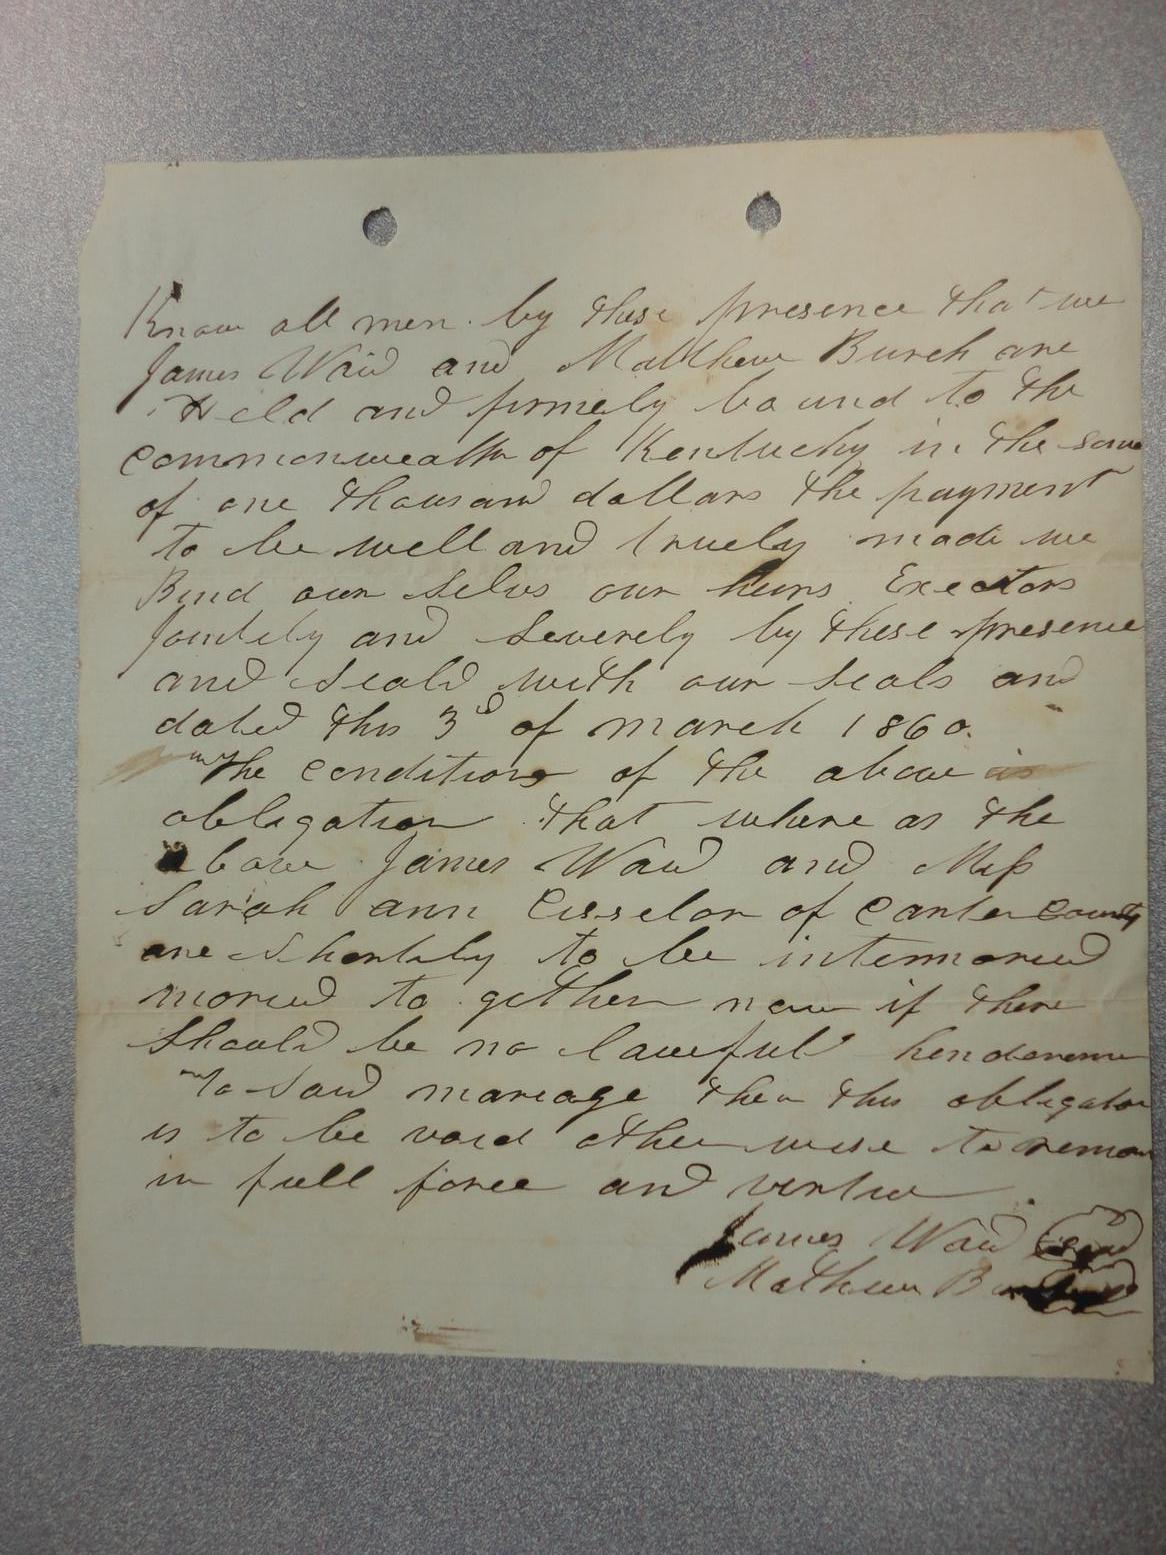 Know all men by these presence that we
James Waid and Matthew Burch are
Held and firmely bound to the
commonwealth of Kentucky in the some
of one thousand dollars the payment
to be well and truely made we
Bind our selvs our heirs Exectors
Jointely and Severely by these presence
and seald with our seals and
dated this 3d of march 1860.
The conditions of the above is
obligation that where as the
above James Waid and Miss
Sarah ann of Carter County
are Shortely to be intermaried
maried to gether now if there
Should be no lawful
To said mariage then this
is to be void other wise to
in full force and virtue
James Waid
Mathew